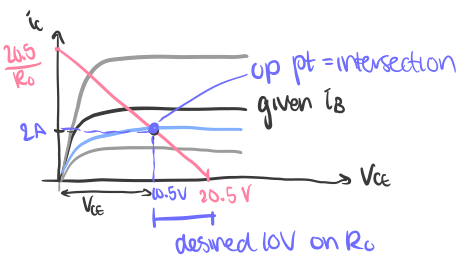 ic
20.5
Ro
op pt = intersection
given iB
2A
VCE
VCE
10.5V
20.5V
desired 10V on Ro